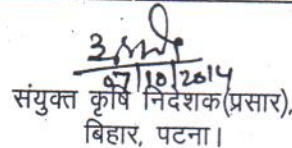 07/10/2014
संयुक्त कृषि निदेशक(प्रसार),
बिहार, पटना।